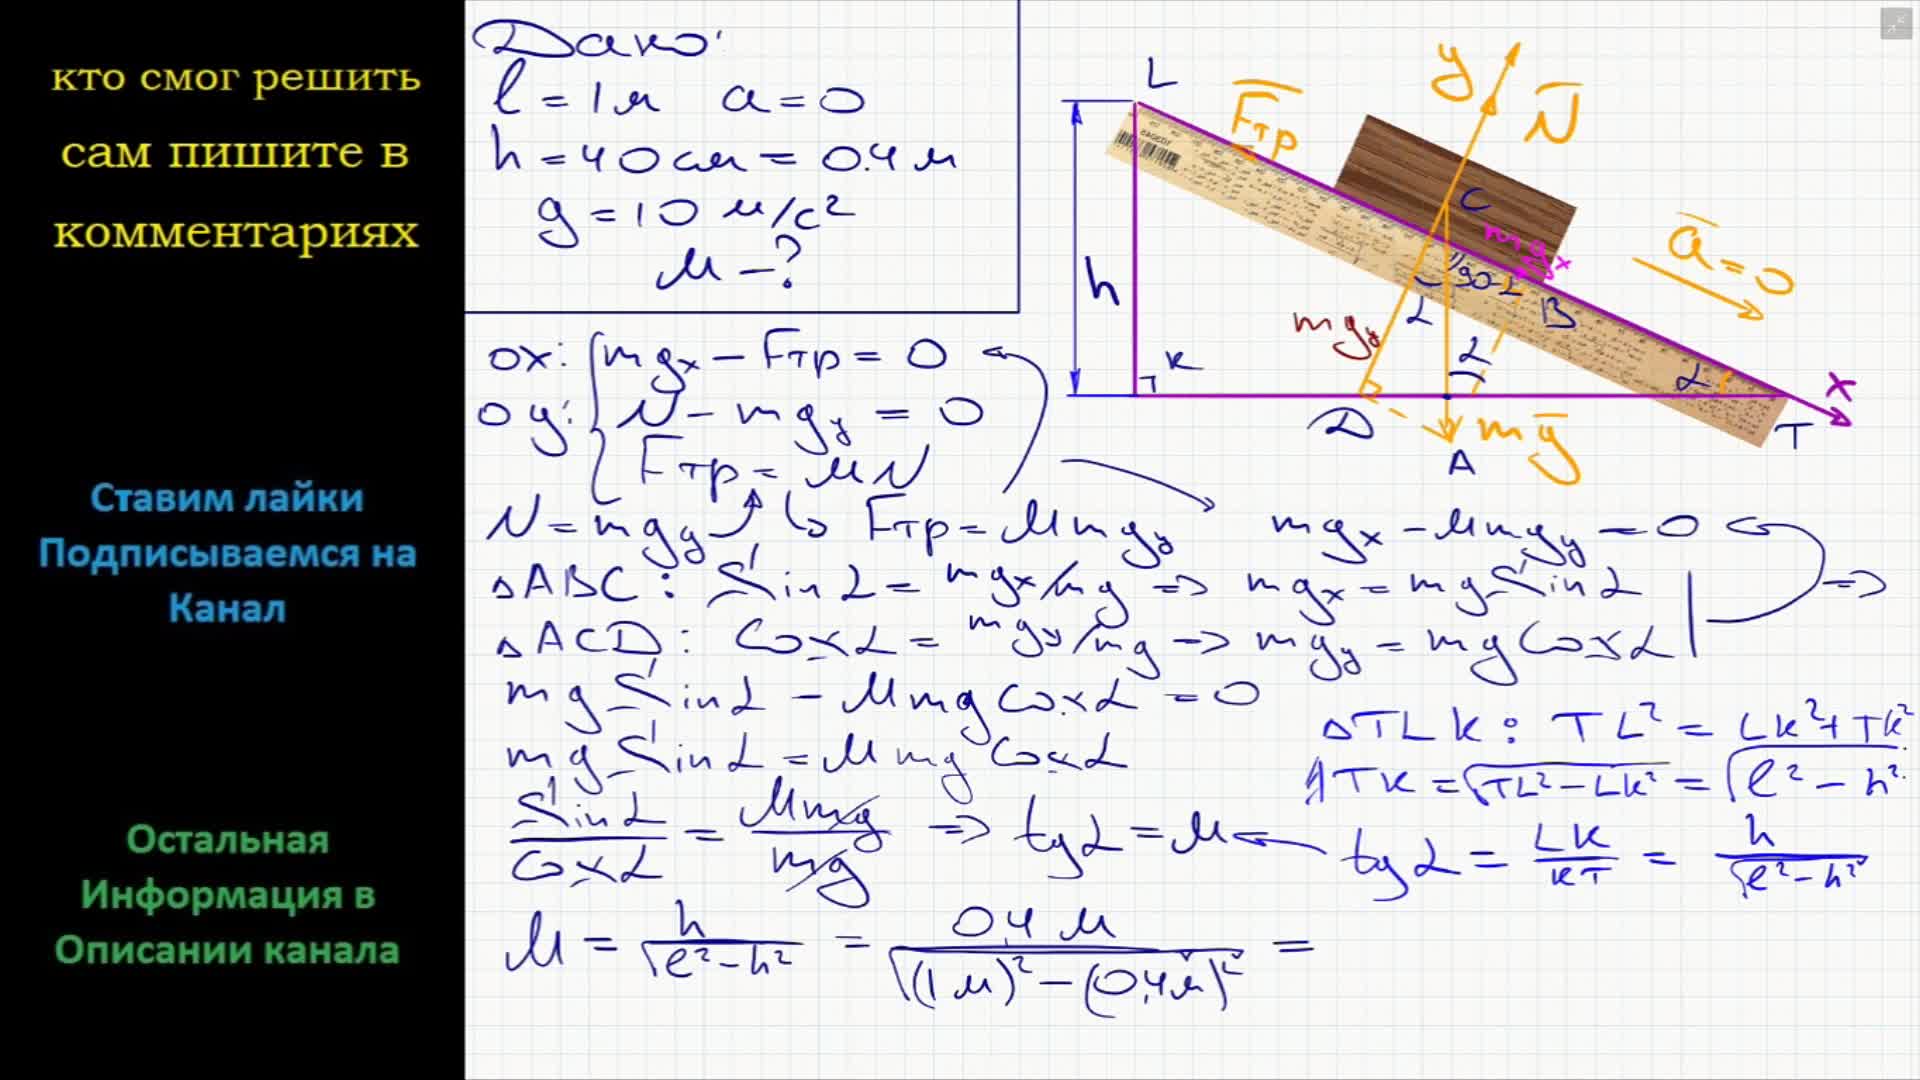 кто смог решить
сам пишите в
комментариях
Ставим лайки
Подписываемся на
Канал
Остальная
Информация в
Описании канала
Дано:
l = 1 м a = 0
h = 40 см = 0.4 м
g = 10 м/с²
μ - ?
L
F̅тр
y
N̅
C
mgₓ
a̅ = 0
h
90-α
B
α
mgy
K
α
α
X
D
mg̅
T
A
ox: mgₓ - Fтр = 0
oy: N - mgy = 0
Fтр = μN
N = mgy Fтр = μmgy mgₓ - μmgy = 0
△ABC: Sin α = mgₓ/mg => mgₓ = mg Sin α =>
△ACD: Cos α = mgy/mg => mgy = mg Cos α
mg Sin α - μmg Cos α = 0
mg Sin α = μ mg Cos α
Sin α / Cos α = μmg / mg => tg α = μ
△TLK: TL² = LK² + TK²
TK = √(TL² - LK²) = √(l² - h²)
tg α = LK / KT = h / √(l² - h²)
μ = h / √(l² - h²) = 0,4 м / √((1 м)² - (0,4 м)²) =